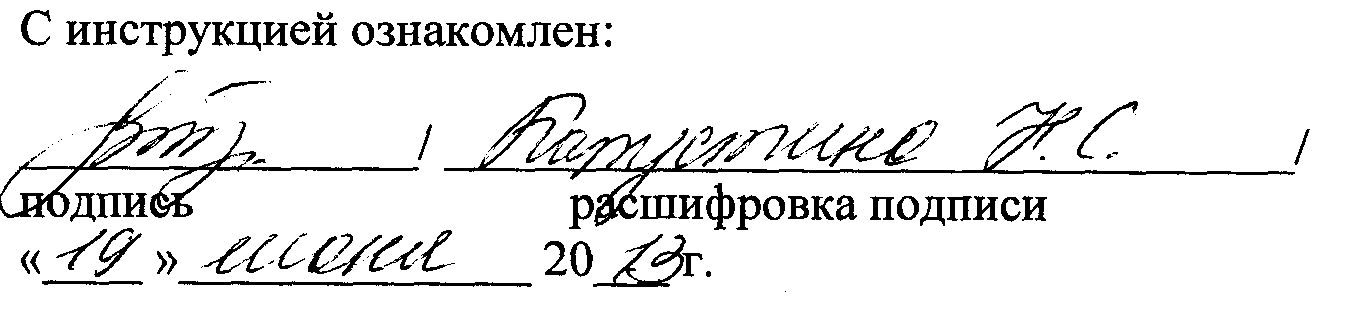 С инструкцией ознакомлен:
/ Капустина Н.С. /
подпись расшифровка подписи
«19» июня 2013г.